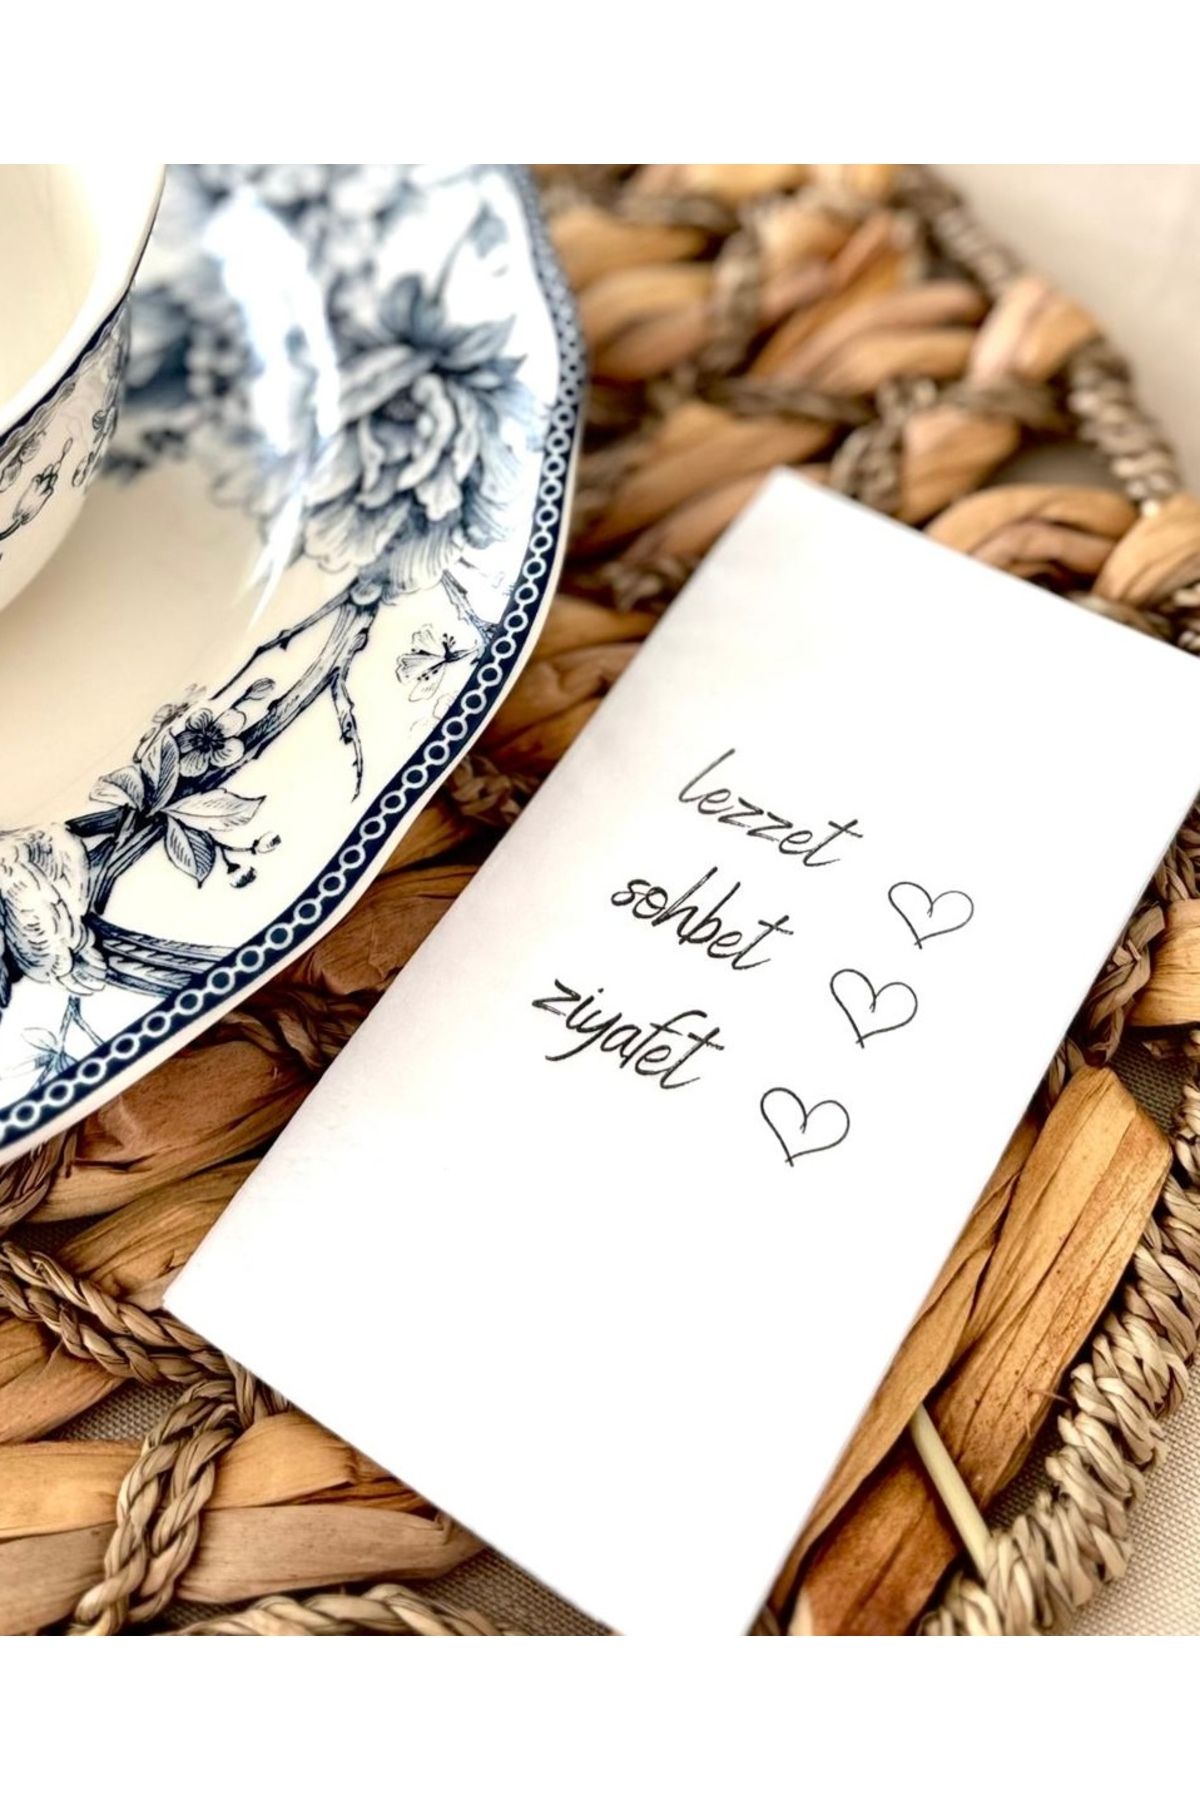 lezzet
sohbet
ziyafet